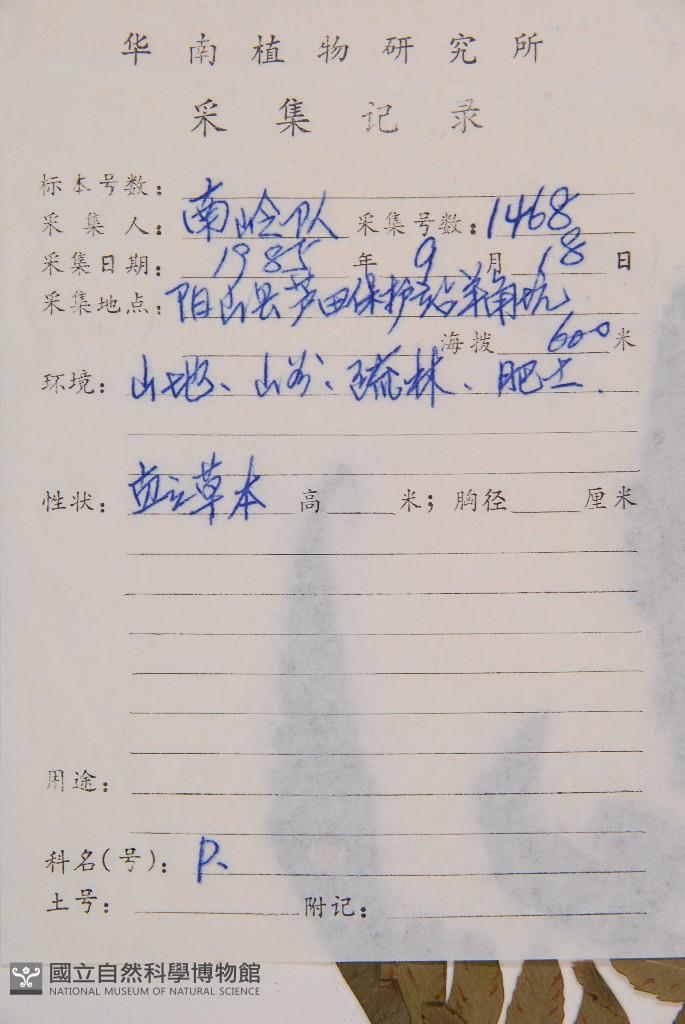 华南植物研究所
采集记录
标本号数：
采集人：南岭队 采集号数：1468
采集日期：1985年9月18日
采集地点：阳山县芦田保护站羊角坑
海拨600米
环境：山地、山谷、疏林、肥土.
性状：直立草本 高 米；胸径 厘米
用途：
科名(号)：P.
土号： 附记：
國立自然科學博物館
NATIONAL MUSEUM OF NATURAL SCIENCE